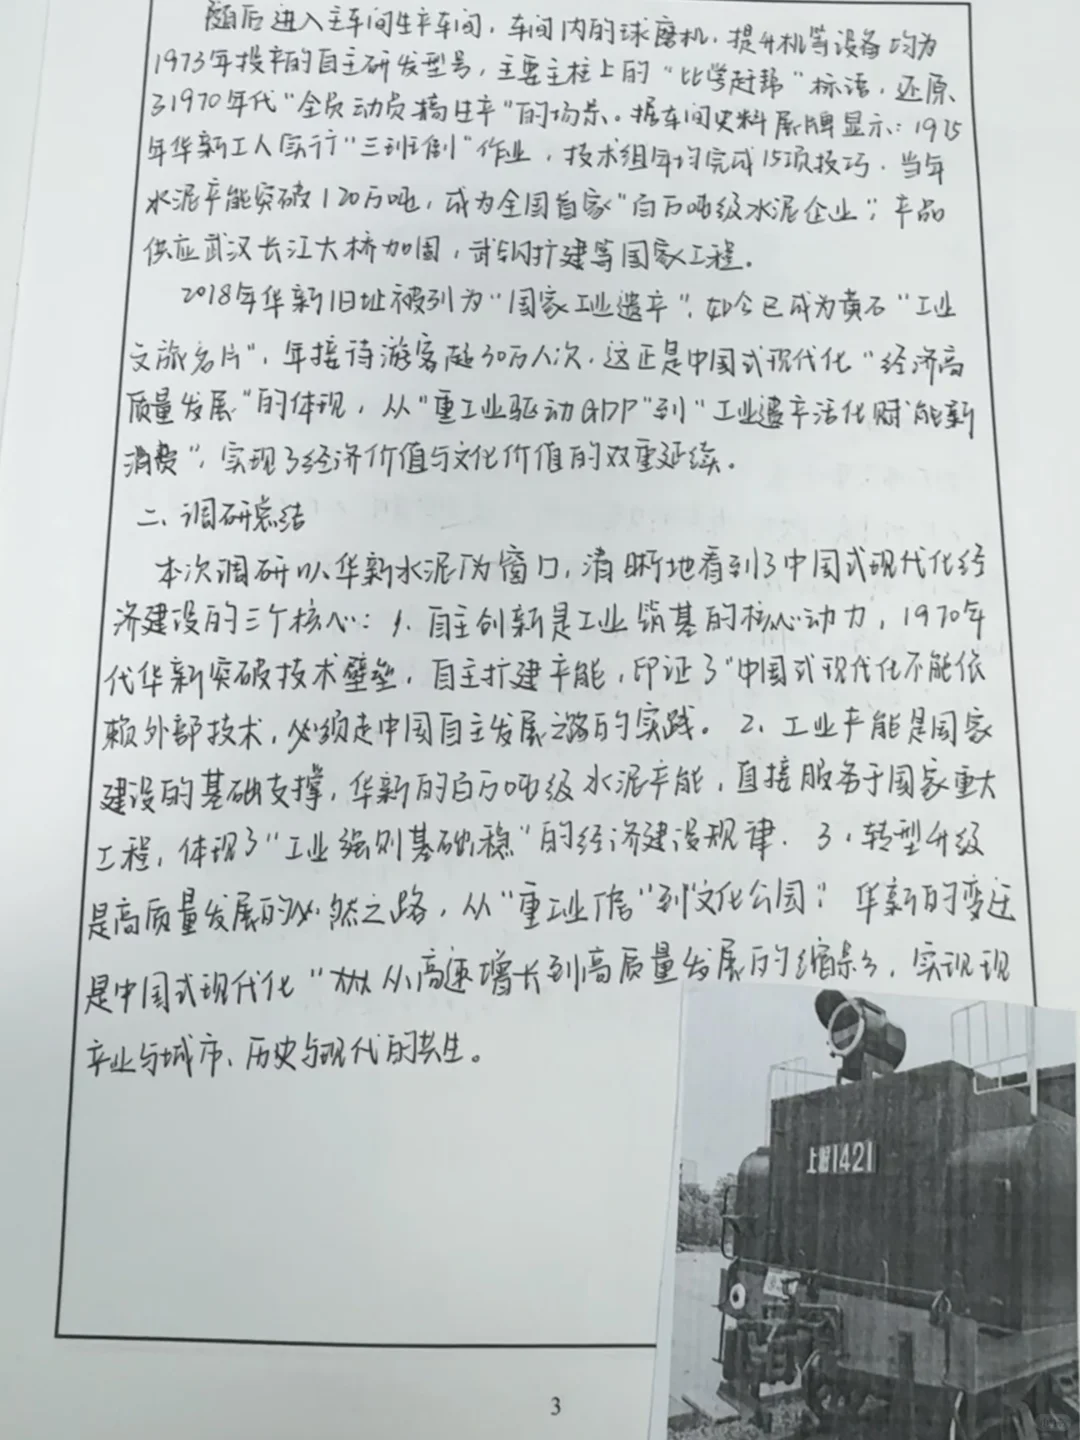 随后进入主车间生产车间，车间内的球磨机，提升机等设备均为
1973年投产的自主研发型号，主要主柱上的“比学赶帮”标语，还原
了1970年代“全员动员搞生产”的场景。据车间史料展牌显示：1975
年华新工人实行“三班制”作业，技术组年均完成15项技巧，当年
水泥产能突破120万吨，成为全国首家“百万吨级水泥企业”，产品
供应武汉长江大桥加固，武钢扩建等国家工程。
2018年华新旧址被列为“国家工业遗产”，如今已成为黄石“工业
文旅名片”，年接待游客超30万人次，这正是中国式现代化“经济高
质量发展”的体现，从“重工业驱动GDP”到“工业遗产活化赋能新
消费”，实现了经济价值与文化价值的双重延续。
二、调研总结
本次调研以华新水泥厂为窗口，清晰地看到了中国式现代化经
济建设的三个核心：1.自主创新是工业筑基的核心动力，1970年
代华新突破技术壁垒，自主扩建产能，印证了“中国式现代化不能依
赖外部技术，必须走中国自主发展之路的实践。2.工业产能是国家
建设的基础支撑，华新的百万吨级水泥产能，直接服务于国家重大
工程，体现了“工业强则基础稳”的经济建设规律.3.转型升级
是高质量发展的必然之路，从“重工业”到“文化公园”，华新的变迁
是中国式现代化“从高速增长到高质量发展的缩影，实现现
产业与城市、历史与现代的共生。
上游1421
3